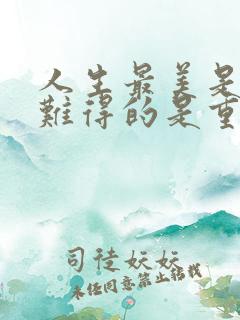 人生最美是
難得的是重
司徒妖妖
未经同意禁止转载